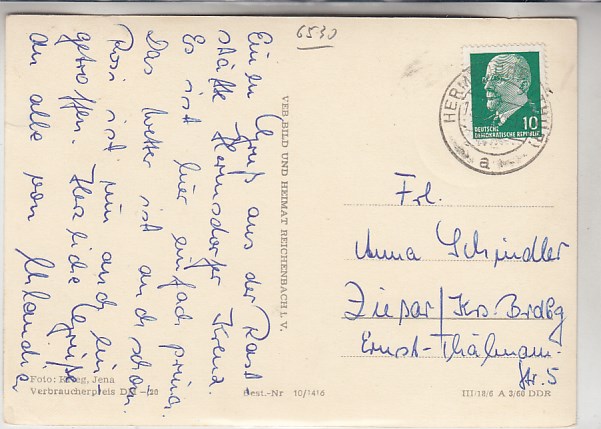 6530
Ein en Gruß aus der Rast
stätte Hermsdorfer Kreuz.
Es ist hier einfach prima.
Das Wetter ist auch schön.
Rosi ist nun auch ein
getroffen. Herzliche Grüße
an alle von
VEB BILD UND HEIMAT REICHENBACH I. V.
Foto: Jena
Verbraucherpreis DM -,20
Best.-Nr 10/1416
HERM
a
10
DEUTSCHE
DEMOKRATISCHE REPUBLIK
Frl.
Anna Schindler
Ziesar/Krs. Brdbg
Ernst-Thälmann-
Str. 5
III/18/6 A 3/60 DDR